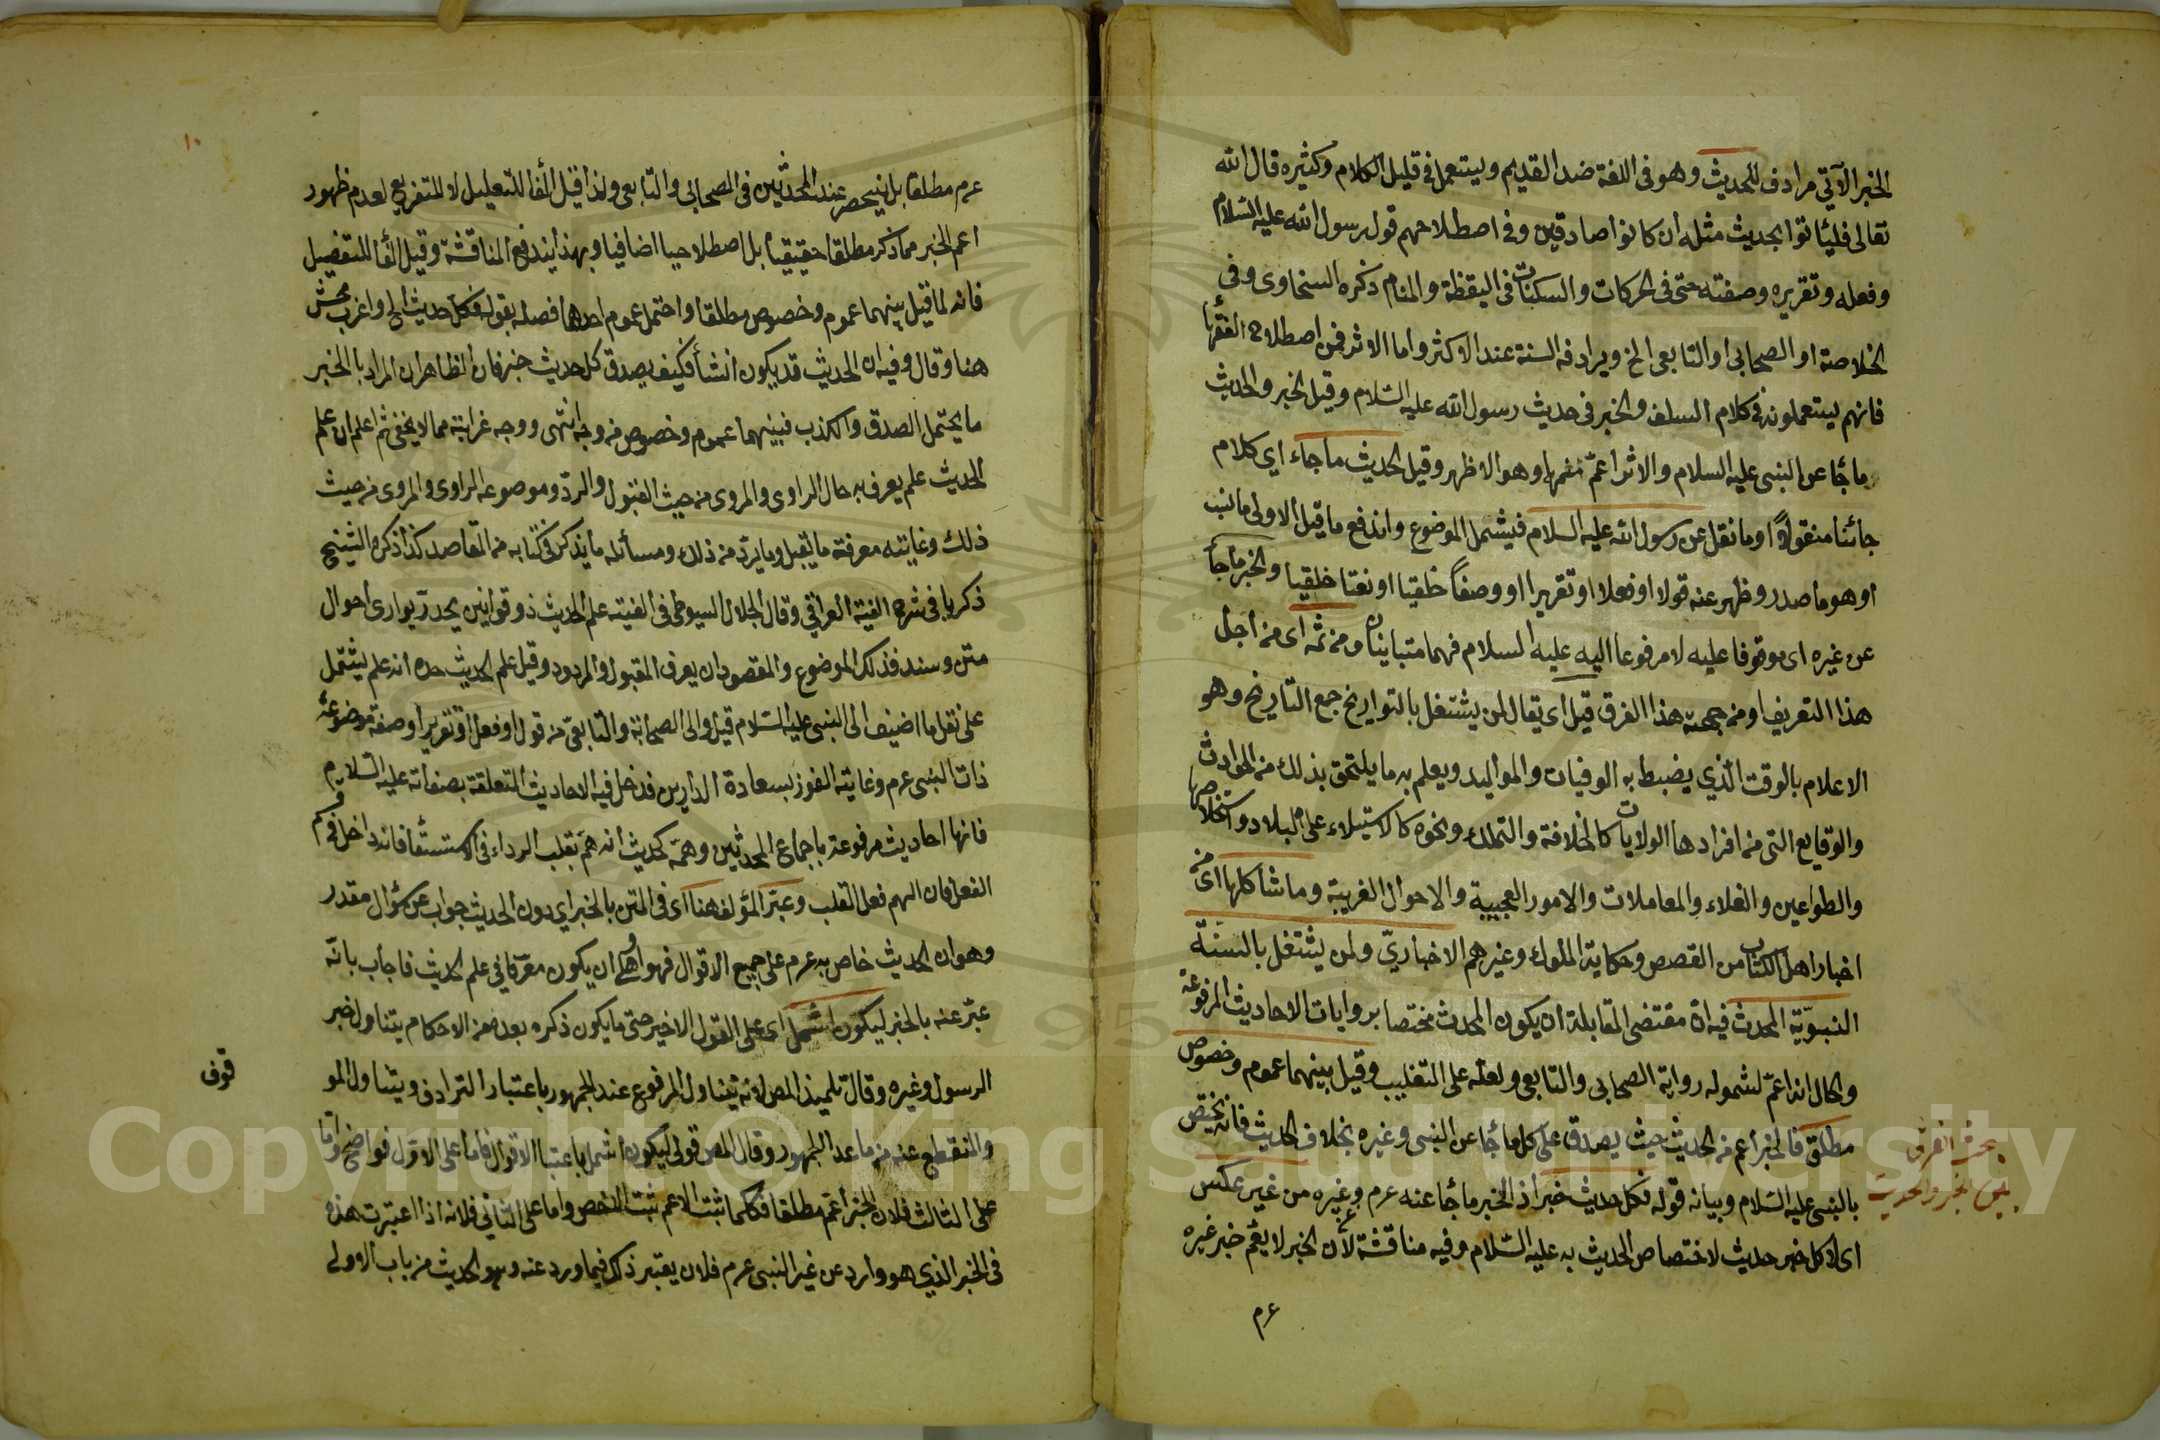 الخبر الآتي مرادف للحديث وهو في اللغة ضد القديم ويستعمل في قليل الكلام وكثيره قال الله
تعالى فليأتوا بحديث مثله ان كانوا صادقين وفي اصطلاحهم قول رسول الله عليه السلام
وفعله وتقريره وصفته حتى في الحركات والسكنات في اليقظة والمنام ذكره السخاوى وفي
الخلاصة او الصحابى او التابعى الخ ويرادفه السنة عند الاكثر واما الاثر فمن اصطلاح الفقهاء
فانهم يستعملونه في كلام السلف والخبر في حديث رسول الله عليه السلام وقيل الخبر والحديث
ما جاء عن النبى عليه السلام والاثر اعمّ منهما وهو الاظهر وقيل الحديث ما جاء اى كلام
جائنا منقولاً او ما نقل عن رسول الله عليه السلام فيشمل الموضوع واندفع ما قيل الاولى ما نسب
او هو ما صدر وظهر عنه قولا او فعلا او تقريرا او وصفاً خلقيا او نعتا خلقيا والخبر ما جاء
عن غيره اى موقوفا عليه لا مرفوعا اليه عليه السلام فهما متباينان ومن ثمه اى من اجل
هذا التعريف او من جهة هذا الفرق قيل اى يقال لمن يشتغل بالتواريخ جمع التاريخ وهو
الاعلام بالوقت الذي يضبط به الوفيات والمواليد ويعلم به ما يلتحق بذلك من الحوادث
والوقايع التى من افرادها الولايات كالخلافة والتملك ونحوه كالاستيلاء على البلاد واستخلاصها
والطواعين والغلاء والمعاملات والامور العجيبة والاحوال الغريبة وما شاكلها اى من
اخبار اهل الكتاب من القصص وحكاية الملوك وغيرهم الاخبارىّ ولمن يشتغل بالسنة
النبويّة المحدث فيه انّ مقتضى المقابلة ان يكون المحدث مختصا بروايات الاحاديث المرفوعة
والحال انه اعمّ لشموله رواية الصحابى والتابعى ولعله على التغليب وقيل بينهما عموم وخصوص
مطلق فالخبر اعم من الحديث حيث يصدق على كل ما جاء عن النبى وغيره بخلاف الحديث فانه يختص
بالنبى عليه السلام وبيانه قوله فكل حديث خبر اذ الخبر ما جاء عنه عرم وغيره من غير عكس
اى لا كل خبر حديث لاختصاص الحديث به عليه السلام وفيه مناقشة لان الخبر لا يعمّ خبر غيره
عرم
بحث الفرق
بين الخبر والحديث
١٠
عرم مطلقا بل ينحصر عند المحدثين في الصحابى والتابعى ولذا قيل الفاء للتعليل لا للتفريع لعدم ظهور
اعم الخبر مما ذكر مطلقا حقيقيا بل اصطلاحيا اضافيا وبهذا يندفع المناقشة وقيل الفاء للتفصيل
فانه لما قيل بينهما عموم وخصوص مطلقا واحتمل عموم احدهما فصله بقوله فكل حديث الخ واغرب محش
هنا وقال وفيه ان الحديث قد يكون انشاء فكيف يصدق كل حديث خبر فان الظاهر ان المراد بالخبر
ما يحتمل الصدق والكذب فبينهما عموم وخصوص من وجه انتهى ووجه غرابته مما لا يخفى ثم اعلم ان علم
الحديث علم يعرف به حال الراوى والمروى من حيث القبول والردّ وموضوعه الراوى والمروى من حيث
ذلك وغايته معرفة ما يقبل وما يردّ من ذلك ومسائله ما يذكر في كتابه من المقاصد كذا ذكره الشيخ
ذكريا في شرح الفية العراقي وقال الجلال السيوطى في الفيته علم الحديث ذو قوانين يحدّ يدرى احوال
متن وسند فذلك الموضوع والمقصود ان يعرف المقبول والمردود وقيل علم الحديث حده انه علم يشتمل
على نقل ما اضيف الى النبى عليه السلام قيل والى الصحابة والتابعىّ من قول او فعل او تقرير او صفة موضوعه
ذات النبى عرم وغايته الفوز بسعادة الدارين فدخل فيه الاحاديث المتعلقة بصفاته عليه السلام
فانها احاديث مرفوعة باجماع المحدثين وهمّه كحديث انه همّ بقلب الرداء في الاستسقاء فانه داخل في حكم
الفعل فان الهم فعل القلب وعبّر المؤلف هنا اى في المتن بالخبر اي دون الحديث جواب عن سؤال مقدر
وهو ان الحديث خاص به عرم على جميع الاقوال فهو اولى ان يكون معرّفا في علم الحديث فاجاب بانّه
عبّر عنه بالخبر ليكون اشمل اى على القول الاخير حتى ما يكون ذكره بعده من الاحكام يتناول خبر
الرسول وغيره وقال تلميذ المص لانه يتناول المرفوع عند الجمهور باعتبار الترادف ويتناول المو
قوف
والمنقطع عنه من ما عدا الجمهور وقال المص قولى ليكون اشمل باعتبار الاقوال فاما على الاوّل فواضح واما
على الثالث فلان الخبر اعمّ مطلقا فكلما ثبت الاعم ثبت الاخص واما على الثانى فلانه اذا اعتبرت هذه
في الخبر الذي هو وارد عن غير النبى عرم فلان يعتبر ذلك فيما ورد عنه وهو الحديث من باب الاولى
Copyright © King Saud University